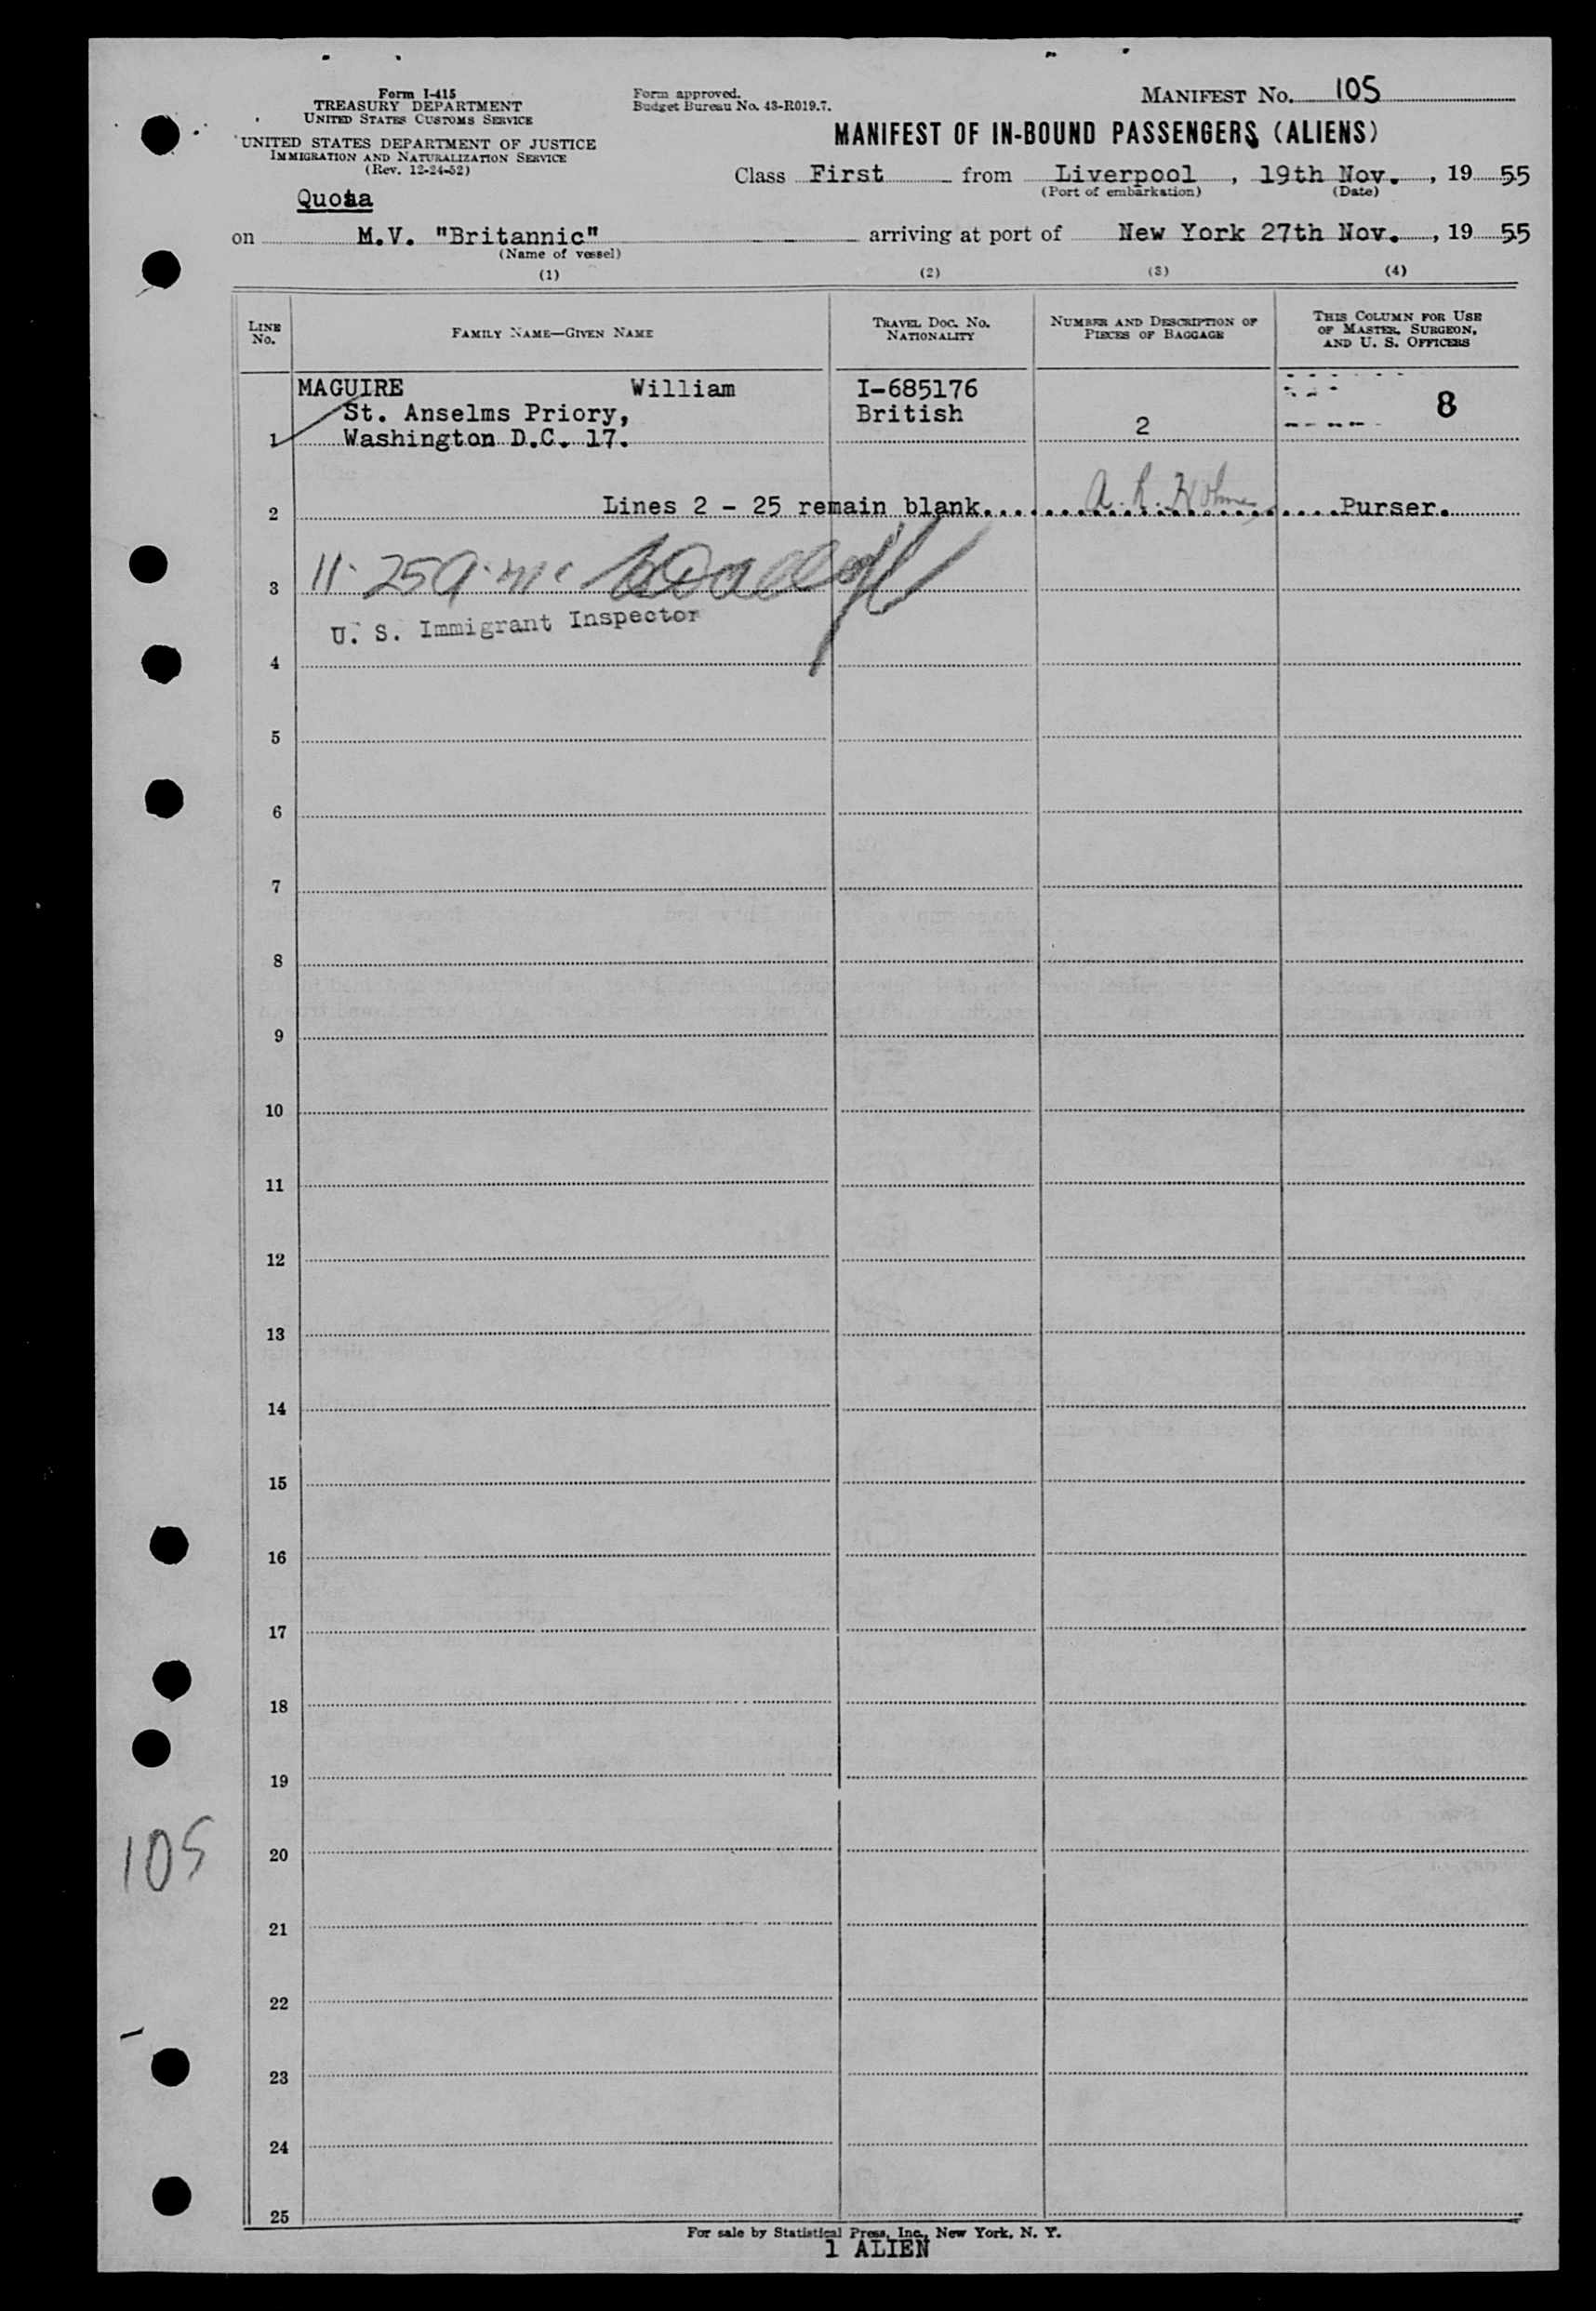 Form I-415
TREASURY DEPARTMENT
UNITED STATES CUSTOMS SERVICE
UNITED STATES DEPARTMENT OF JUSTICE
IMMIGRATION AND NATURALIZATION SERVICE
(Rev. 12-24-52)
Form approved.
Budget Bureau No. 43-R019.7.
MANIFEST No. 105
MANIFEST OF IN-BOUND PASSENGERS (ALIENS)
Class First from Liverpool, 19th Nov., 1955
(Port of embarkation) (Date)
Quota
on M.V. "Britannic" arriving at port of New York 27th Nov., 1955
(Name of vessel)
(1) (2) (3) (4)
LINE No. FAMILY NAME—GIVEN NAME TRAVEL DOC. No. NATIONALITY NUMBER AND DESCRIPTION OF PIECES OF BAGGAGE THIS COLUMN FOR USE OF MASTER, SURGEON, AND U. S. OFFICERS
MAGUIRE William I-685176
St. Anselms Priory, British 8
1 Washington D.C. 17. 2
2 Lines 2 - 25 remain blank. A. R. Purser.
3 11.25 a.m.
U. S. Immigrant Inspector
4
5
6
7
8
9
10
11
12
13
14
15
16
17
18
19
105
20
21
22
23
24
25
For sale by Statistical Press, Inc., New York, N. Y.
1 ALIEN